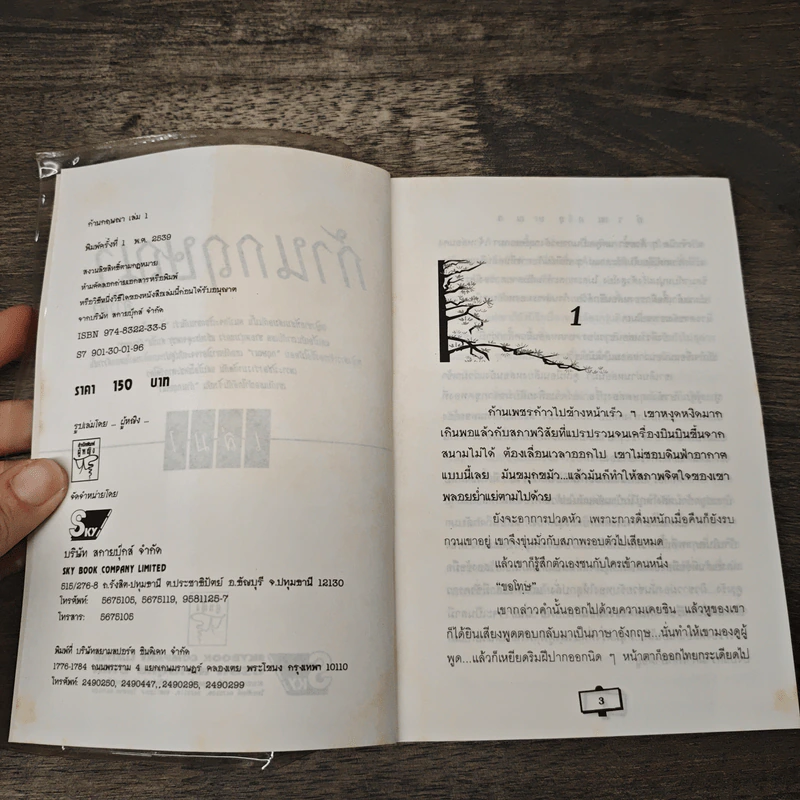 ก้านกฤษณา เล่ม 1
พิมพ์ครั้งที่ 1 พ.ศ. 2539
สงวนลิขสิทธิ์ตามกฎหมาย
ห้ามคัดลอกถ่ายเอกสารหรือพิมพ์
หรือวิธีหนึ่งวิธีใดของหนังสือเล่มนี้ก่อนได้รับอนุญาต
จากบริษัท สกายบุ๊กส์ จำกัด
ISBN 974-8322-33-5
S7 901-30-01-96
ราคา 150 บาท
รูปเล่มโดย .. ผู้หญิง ..
สำนักพิมพ์
ผู้หญิง
จัดจำหน่ายโดย
SKY
บริษัท สกายบุ๊กส์ จำกัด
SKY BOOK COMPANY LIMITED
515/276-8 ถ.รังสิต-ปทุมธานี ต.ประชาธิปัตย์ อ.ธัญบุรี จ.ปทุมธานี 12130
โทรศัพท์: 5675105, 5675119, 9581125-7
โทรสาร: 5675105
พิมพ์ที่ บริษัทสยามสปอร์ต ซินดิเคท จำกัด
1776-1784 ถนนพระราม 4 แยกเกษมราษฎร์ คลองเตย พระโขนง กรุงเทพฯ 10110
โทรศัพท์ 2490250, 2490447, 2490295, 2490299
1
ก้านเพชรก้าวไปข้างหน้าเร็ว ๆ เขาหงุดหงิดมาก
เกินพอแล้วกับสภาพวิสัยที่แปรปรวนจนเครื่องบินบินขึ้นจาก
สนามไม่ได้ ต้องเลื่อนเวลาออกไป เขาไม่ชอบดินฟ้าอากาศ
แบบนี้เลย มันขมุกขมัว...แล้วมันก็ทำให้สภาพจิตใจของเขา
พลอยย่ำแย่ตามไปด้วย
ยังจะอาการปวดหัว เพราะการดื่มหนักเมื่อคืนก็ยังรบ
กวนเขาอยู่ เขาจึงขุ่นมัวกับสภาพรอบตัวไปเสียหมด
แล้วเขาก็รู้สึกตัวเองชนกับใครเข้าคนหนึ่ง
“ขอโทษ”
เขากล่าวคำนั้นออกไปด้วยความเคยชิน แล้วหูของเขา
ก็ได้ยินเสียงพูดตอบกลับมาเป็นภาษาอังกฤษ...นั่นทำให้เขามองดูผู้
พูด...แล้วก็เหยียดริมฝีปากออกนิด ๆ หน้าตาก็ออกไทยกระเดียดไป
3